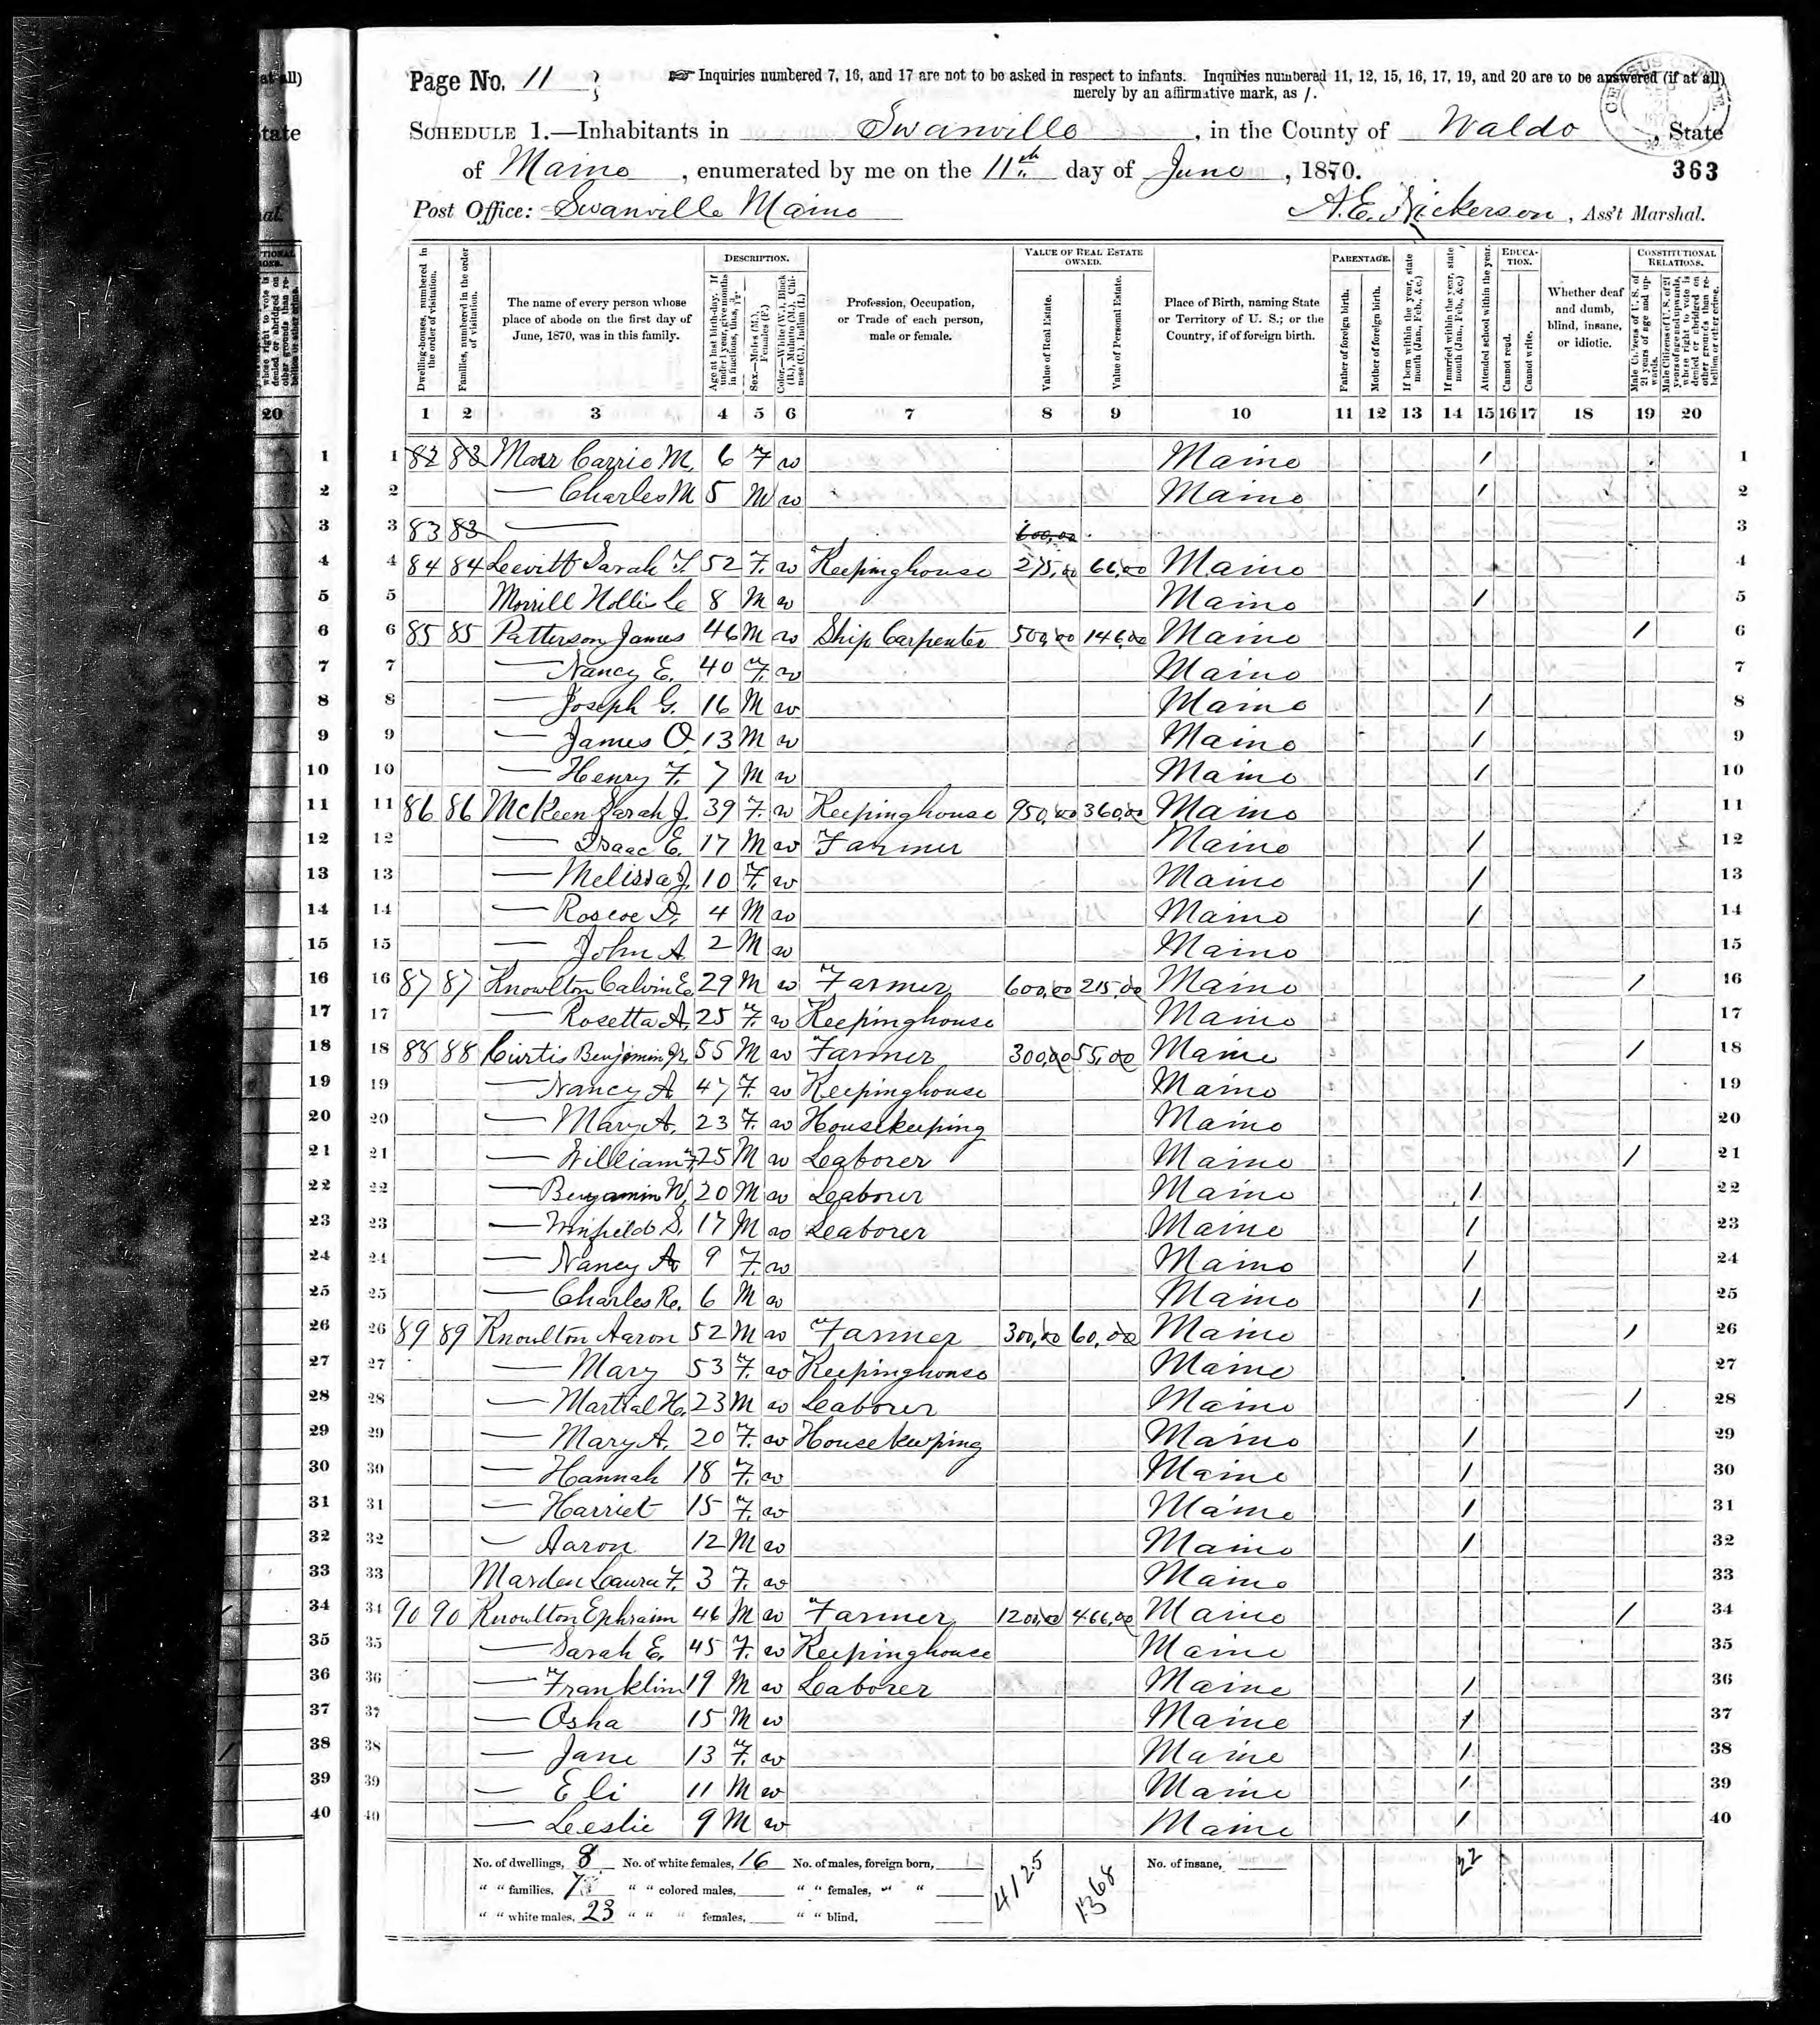 at all)
State
nal.
20
Page No. 11
☞ Inquiries numbered 7, 16, and 17 are not to be asked in respect to infants. Inquiries numbered 11, 12, 15, 16, 17, 19, and 20 are to be answered (if at all)
merely by an affirmative mark, as /.
SCHEDULE 1.—Inhabitants in Swanville, in the County of Waldo, State
of Maine, enumerated by me on the 11th day of June, 1870. 363
Post Office: Swanville Maine A. E. Nickerson, Ass't Marshal.
Dwelling-houses, numbered in the order of visitation.
Families, numbered in the order of visitation.
The name of every person whose place of abode on the first day of June, 1870, was in this family.
DESCRIPTION.
Age at last birth-day. If under 1 year, give months in fractions, thus, 3/12.
Sex.—Males (M.), Females (F.)
Color.—White (W.), Black (B.), Mulatto (M.), Chinese (C.), Indian (I.)
Profession, Occupation, or Trade of each person, male or female.
VALUE OF REAL ESTATE OWNED.
Value of Real Estate.
Value of Personal Estate.
Place of Birth, naming State or Territory of U. S.; or the Country, if of foreign birth.
PARENTAGE.
Father of foreign birth.
Mother of foreign birth.
If born within the year, state month (Jan., Feb., &c.)
If married within the year, state month (Jan., Feb., &c.)
Attended school within the year.
EDUCATION.
Cannot read.
Cannot write.
Whether deaf and dumb, blind, insane, or idiotic.
CONSTITUTIONAL RELATIONS.
Male Citizens of U. S. of 21 years of age and upwards.
Male Citizens of U. S. of 21 years of age and upwards, whose right to vote is denied or abridged on other grounds than rebellion or other crime.
1 2 3 4 5 6 7 8 9 10 11 12 13 14 15 16 17 18 19 20
1 82 82 Marr Carrie M. 6 F w Maine / 1
2 — Charles M 5 M w Maine / 2
3 83 83 — 600,00 3
4 84 84 Levitt Sarah F. 52 F. w Keepinghouse 275,00 66,00 Maine 4
5 Morrill Hollis C 8 M w Maine / 5
6 85 85 Patterson James 46 M w Ship Carpenter 500,00 146,00 Maine / 6
7 — Nancy E. 40 F. w Maine 7
8 — Joseph G. 16 M w Maine / 8
9 — James O. 13 M w Maine / 9
10 — Henry F. 7 M w Maine / 10
11 86 86 McKeen Sarah J. 39 F. w Keepinghouse 950,00 360,00 Maine 11
12 — Isaac E. 17 M w Farmer Maine / 12
13 — Melissa J. 10 F. w Maine / 13
14 — Roscoe D. 4 M w Maine / 14
15 — John A 2 M w Maine 15
16 87 87 Knowlton Calvin E. 29 M w Farmer 600,00 215,00 Maine / 16
17 — Rosetta A. 25 F. w Keepinghouse Maine 17
18 88 88 Curtis Benjamin Jr. 55 M w Farmer 300,00 55,00 Maine / 18
19 — Nancy A 47 F. w Keepinghouse Maine 19
20 — Mary A. 23 F. w Housekeeping Maine 20
21 — William F. 25 M w Leaborer Maine / 21
22 — Benjamin W. 20 M w Leaborer Maine / 22
23 — Winfield S. 17 M w Leaborer Maine / 23
24 — Nancy A 9 F. w Maine / 24
25 — Charles R. 6 M w Maine / 25
26 89 89 Knoulton Aaron 52 M w Farmer 300,00 60,00 Maine / 26
27 — Mary 53 F. w Keepinghouse Maine 27
28 — Martial H. 23 M w Leaborer Maine / 28
29 — Mary A. 20 F. w Housekeeping Maine / 29
30 — Hannah 18 F. w Maine / 30
31 — Harriet 15 F. w Maine / 31
32 — Aaron 12 M w Maine / 32
33 Marden Laura F. 3 F. w Maine 33
34 90 90 Knoulton Ephraim 46 M w Farmer 1200,00 466,00 Maine / 34
35 — Sarah E. 45 F. w Keepinghouse Maine 35
36 — Franklin 19 M w Leaborer Maine / 36
37 — Osha 15 M w Maine / 37
38 — Jane 13 F. w Maine / 38
39 — Eli 11 M w Maine / 39
40 — Leslie 9 M w Maine / 40
No. of dwellings, 8 No. of white females, 16 No. of males, foreign born, 4125 1368 No. of insane, 22
" " families, 7 " " colored males, " " females, " "
" " white males, 23 " " " females, " " blind,